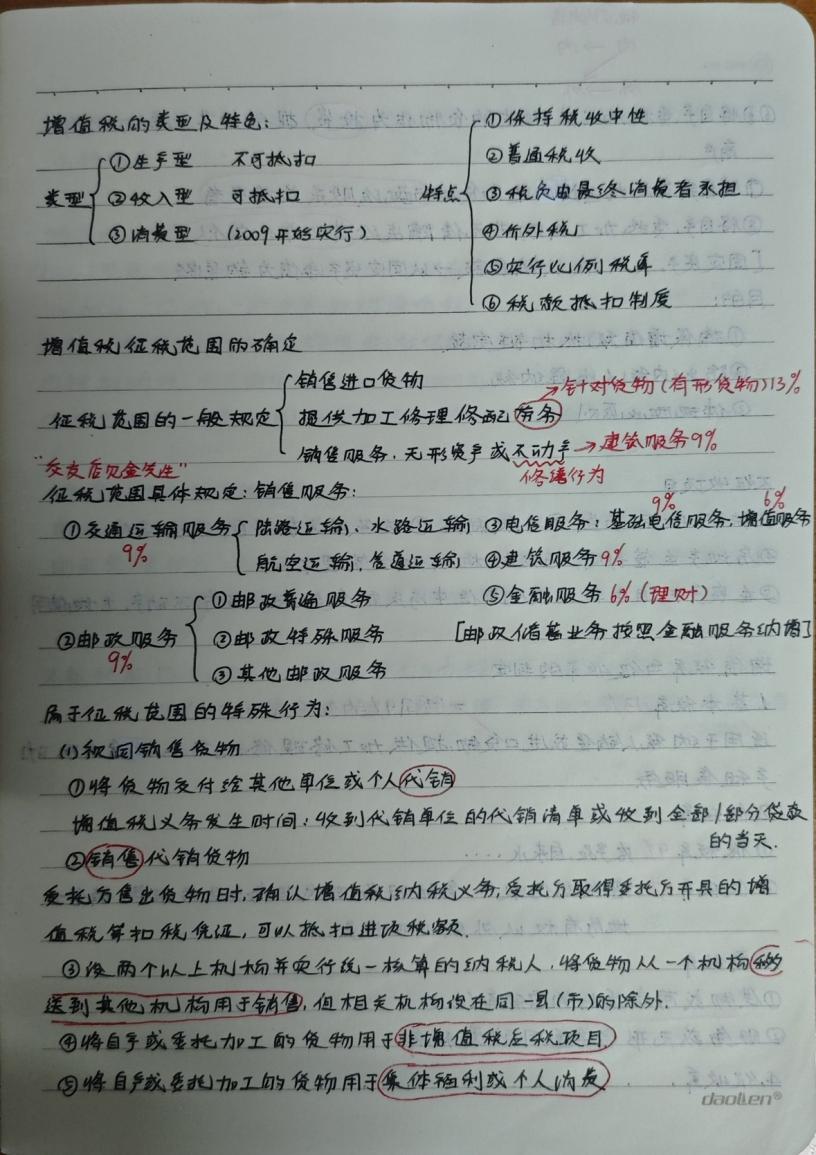 增值税的类型及特色:
类型
①生产型 不可抵扣
②收入型 可抵扣
③消费型 (2009开始实行)
特点
①保持税收中性
②普遍税收
③税负由最终消费者承担
④价外税
⑤实行比例税率
⑥税款抵扣制度
增值税征税范围的确定
征税范围的一般规定
销售进口货物
提供加工修理修配劳务
→针对货物(有形货物)13%
销售服务、无形资产或不动产→建筑服务9%
修缮行为
征税范围具体规定:销售服务:
①交通运输服务
9%
陆路运输、水路运输
航空运输、管道运输
②邮政服务
9%
①邮政普遍服务
②邮政特殊服务
③其他邮政服务
③电信服务:基础电信服务,增值服务
9% 6%
④建筑服务9%
⑤金融服务6%(理财)
[邮政储蓄业务按照金融服务纳增]
属于征税范围的特殊行为:
(1)视同销售货物
①将货物交付给其他单位或个人代销
增值税义务发生时间:收到代销单位的代销清单或收到全部/部分货款
的当天.
②销售代销货物
受托方售出货物时,确认增值税纳税义务,受托方取得委托方开具的增
值税等扣税凭证,可以抵扣进项税额.
③设两个以上机构并实行统一核算的纳税人,将货物从一个机构移
送到其他机构用于销售,但相关机构设在同一县(市)的除外.
④将自产或委托加工的货物用于非增值税应税项目
⑤将自产或委托加工的货物用于集体福利或个人消费
daolien®